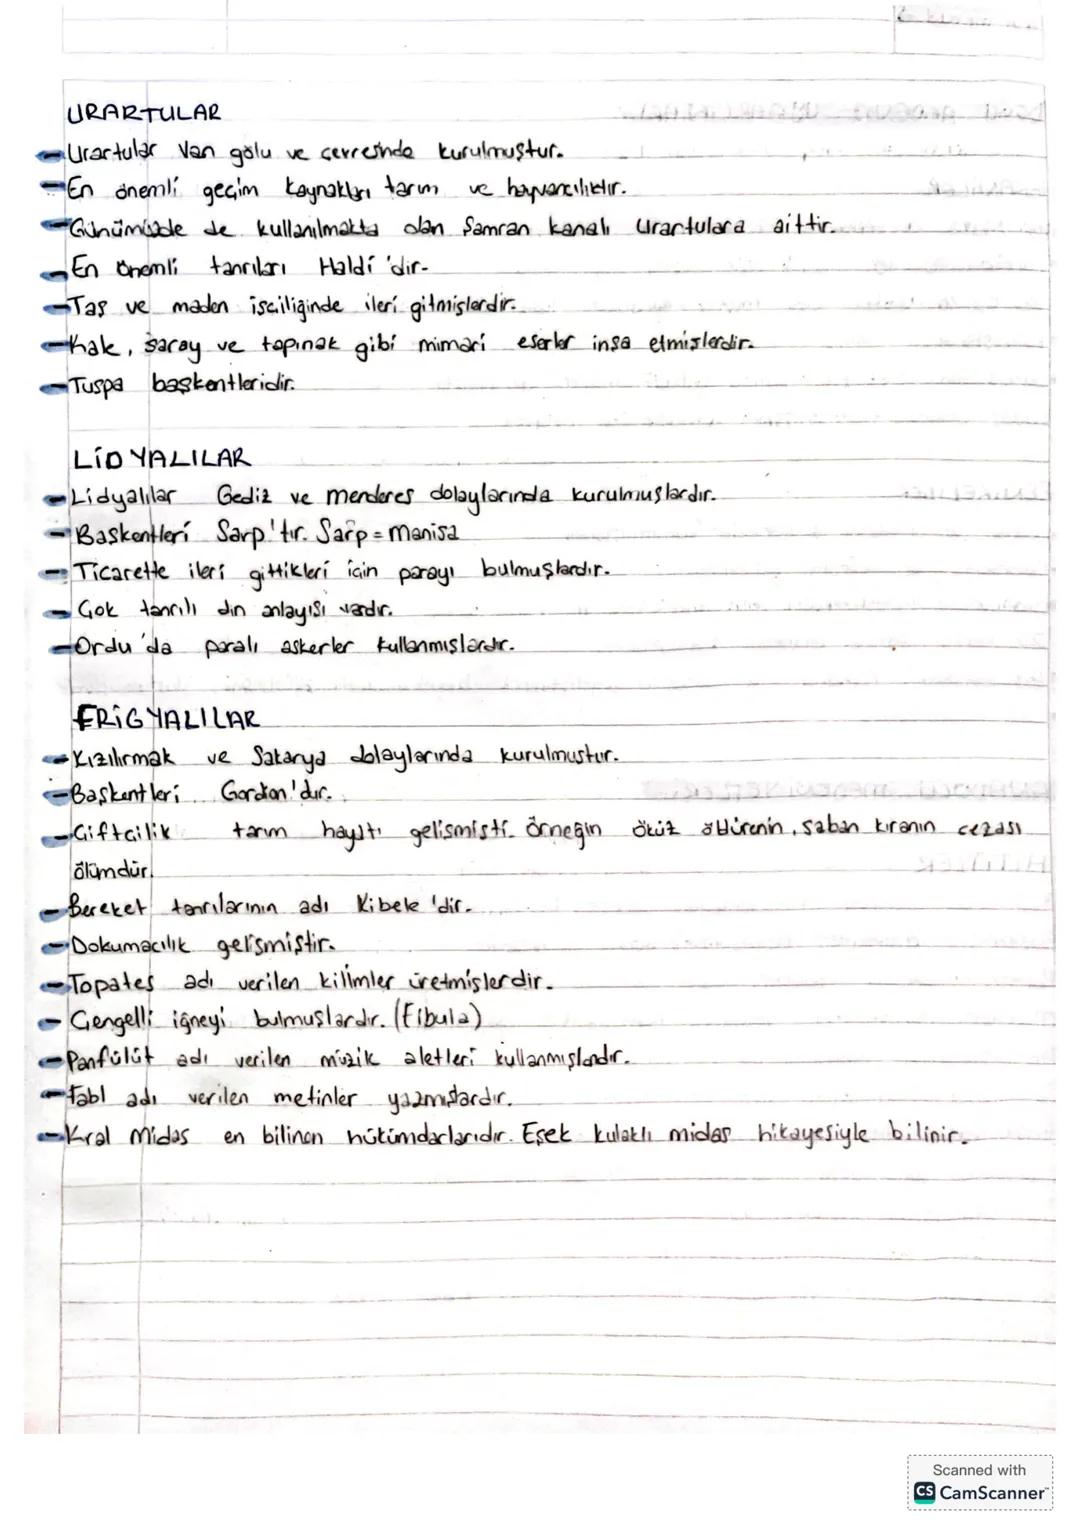 URARTULAR
Urartular Van gölu ve cevresinde kurulmuştur.
En önemli geçim kaynakları tarım ve hayvancılıktır.
Günümüzde de kullanılmakta olan Şamran kanalı Urartulara aittir.
En önemli tanrıları Haldi'dir.
Taş ve maden işciliğinde ileri gitmişlerdir.
Kale, saray ve tapınak gibi mimari eserler inşa etmişlerdir.
Tuspa başkentleridir.
LİDYALILAR
Lidyalılar Gediz ve menderes dolaylarında kurulmuşlardır.
Başkentleri Sarp'tır. Sarp = Manisa
Ticarette ileri gittikleri için parayı bulmuşlardır.
Çok tanrılı din anlayışı vardır.
Ordu'da paralı askerler kullanmışlardır.
FRİGYALILAR
Kızılırmak ve Sakarya dolaylarında kurulmuştur.
Başkentleri Gordion'dur.
Çiftcilik tarım hayatı gelişmişti. Örneğin öküz öldürenin, saban kıranın cezası
ölümdür.
Bereket tanrılarının adı Kibele'dir.
Dokumacılık gelişmiştir.
Topates adı verilen kilimler üretmişlerdir.
Çengelli iğneyi bulmuşlardır. (Fibula)
Panfülüt adı verilen müzik aletleri kullanmışlardır.
Fabl adı verilen metinler yazmışlardır.
Kral Midas en bilinen hükümdarlarıdır. Eşek kulaklı midas hikayesiyle bilinir.
Scanned with
CS CamScanner